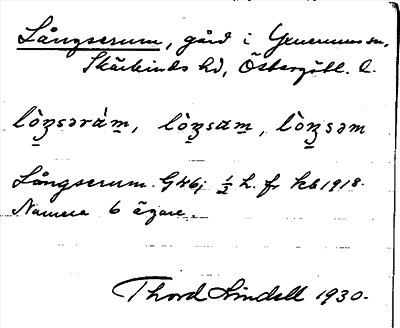 Långserum, gård i Yxnerums sn,
Skärkinds hd, Östergötl. l.
lòŋsəràm, lòŋsam, lòŋsəm
Långserum. G K 6; ½ h. fr kb 1918.
Numera 6 ägare.
Thord Lindell 1930.